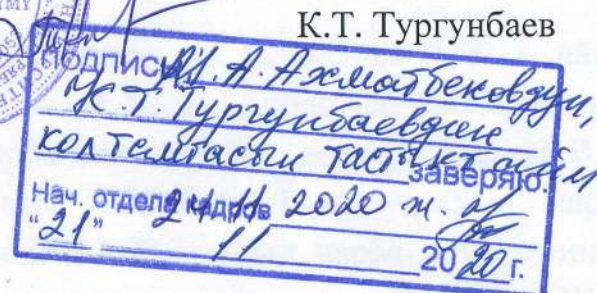 К.Т. Тургунбаев
ПОДПИСЬ А. Ахматбековдун,
К.Т. Тургунбаевдин
колтамгасын тастыктайм
заверяю.
Нач. отдела кадров 21 11 2020 ж.
"21" 11 2020 г.